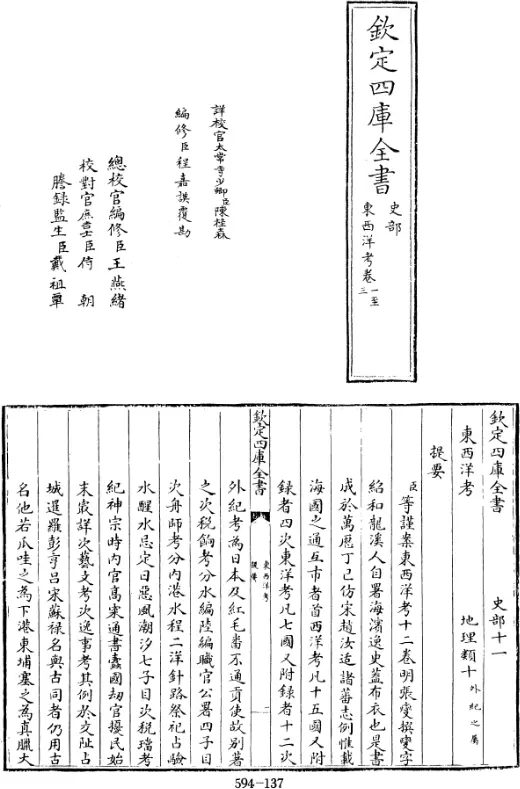 欽定四庫全書
史部
東西洋考卷一至三
詳校官太常寺少卿臣陳桂森
編修臣程嘉謨覆勘
總校官編修臣王燕緒
校對官庶吉士臣侍朝
謄録監生臣戴祖
欽定四庫全書
史部十一
東西洋考
地理類十外紀之屬
提要
臣等謹案東西洋考十二卷明張燮撰燮字
紹和龍溪人自署海濱逸史蓋布衣也是書
成於萬厯丁巳仿宋趙汝适諸蕃志例惟載
海國之通互市者首西洋考凡十五國又附
録者四次東洋考凡七國又附録者十二次
欽定四庫全書
東西洋考
提要
二
外紀考為日本及紅毛番不通貢使故别著
之次税餉考分水編陸編職官公署四子目
次舟師考分内港水程二洋針路祭祀占驗
水醒水忌定日惡風潮汐七子目次税璫考
紀神宗時内官高寀通書蠧國刼官擾民始
末最詳次藝文考次逸事考其例於交阯占
城暹羅彭亨吕宋蘇禄名與古同者仍用古
名他若爪哇之為下港柬埔寨之為真臘大
594-137